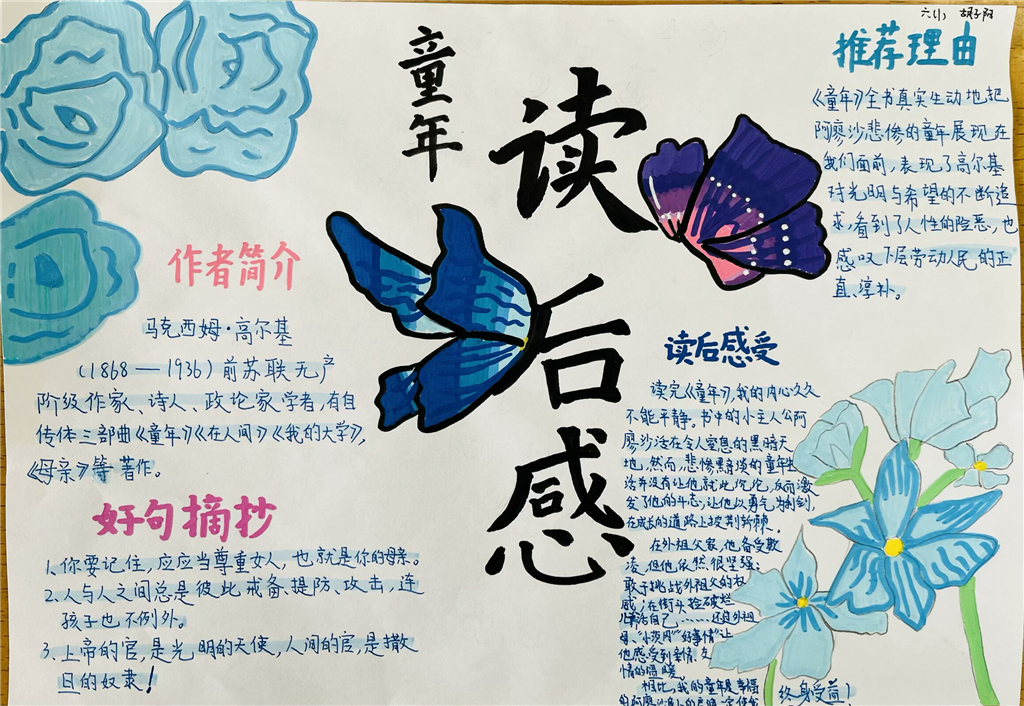 六(1) 胡子阳
童年
读后感
推荐理由
《童年》全书真实生动地把
阿廖沙悲惨的童年展现在
我们面前,表现了高尔基
对光明与希望的不断追
求,看到了人性的险恶,也
感叹下层劳动人民的正
直、淳朴。
作者简介
马克西姆·高尔基
(1868—1936)前苏联无产
阶级作家、诗人、政论家学者,有自
传体三部曲《童年》《在人间》《我的大学》,
《母亲》等著作。
好句摘抄
1、你要记住,应应当尊重女人,也就是你的母亲。
2、人与人之间总是彼此戒备、提防、攻击,连
孩子也不例外。
3、上帝的官,是光明的天使,人间的官,是撒
旦的奴隶!
读后感受
读完《童年》,我的内心久久
不能平静。书中的小主人公阿
廖沙活在令人窒息的黑暗天
地,然而,悲惨黑暗的童年生
活并没有让他就此沉沦,反而激
发了他的斗志,让他以勇气为利剑,
在成长的道路上披荆斩棘。
在外祖父家,他备受欺
凌,但他依然很坚强:
敢于挑战外祖父的权
威;在街头捡破烂
儿养活自己……还有外祖
母、“小茨冈”“好事情”让
他感受到亲情、友
情的温暖。
相比,我的童年是幸福
终身受益!